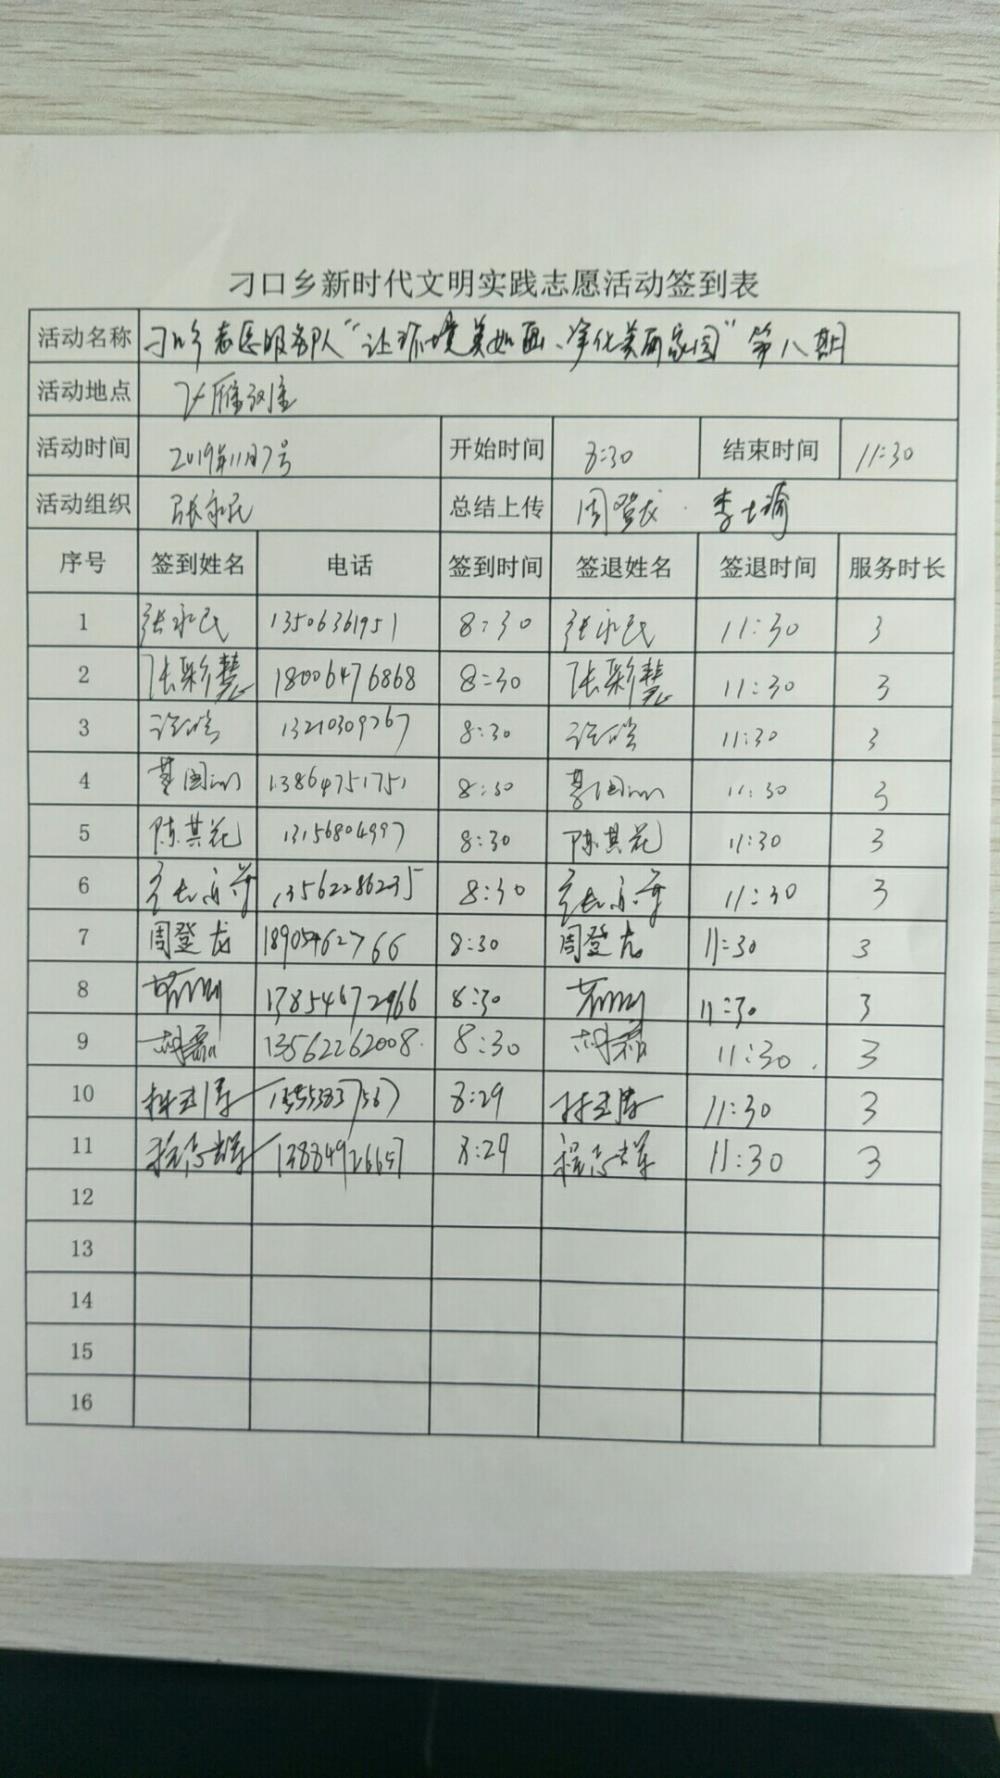 刁口乡新时代文明实践志愿活动签到表
活动名称 刁口乡志愿服务队“让环境美如画、净化美丽家园”第八期
活动地点
活动时间 2019年11月7号 开始时间 8:30 结束时间 11:30
活动组织 张永民 总结上传 周登龙 李士瑜
序号 签到姓名 电话 签到时间 签退姓名 签退时间 服务时长
1 张永民 13506361951 8:30 张永民 11:30 3
2 张彩慧 18006476868 8:30 张彩慧 11:30 3
3 13210309767 8:30 11:30 3
4 13864751751 8:30 11:30 3
5 陈其花 13156804997 8:30 陈其花 11:30 3
6 13562286235 8:30 11:30 3
7 周登龙 18905462766 8:30 周登龙 11:30 3
8 13854672966 8:30 11:30 3
9 胡磊 13562262008 8:30 胡磊 11:30 3
10 8:29 11:30 3
11 程志辉 8:29 程志辉 11:30 3
12
13
14
15
16